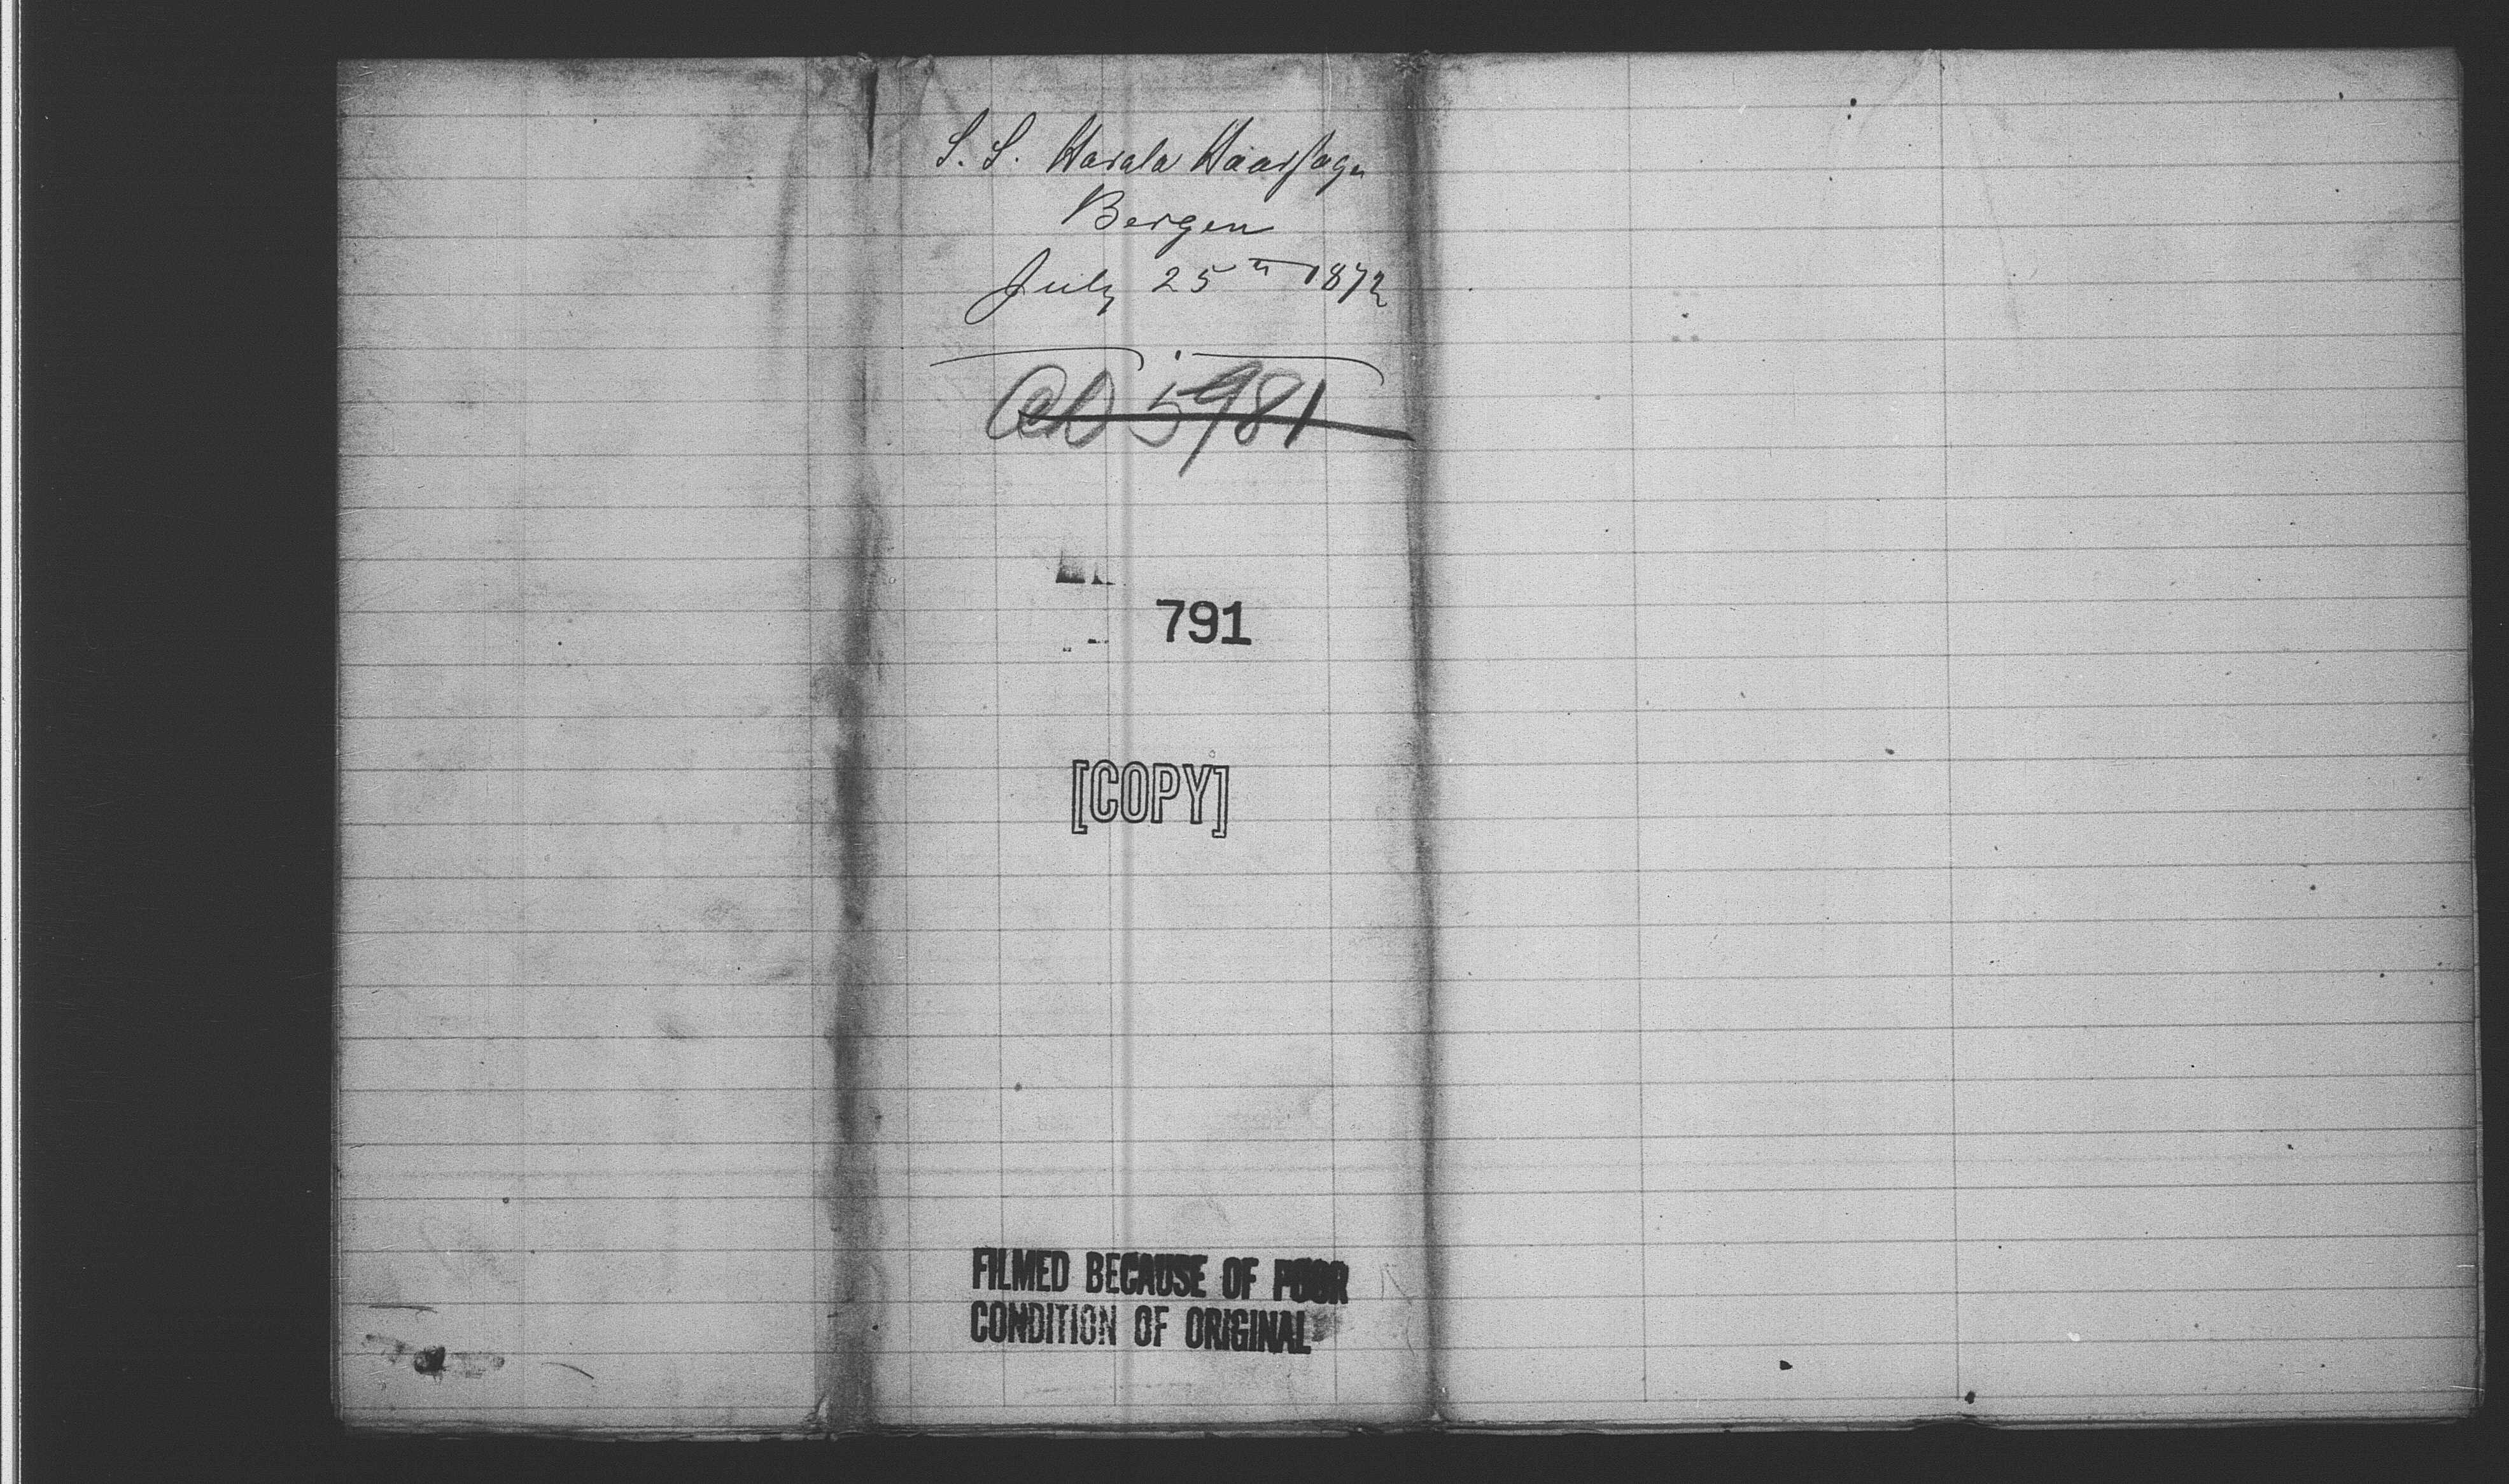 S. S. Harala Haarfager
Bergen
July 25th 1872
5981
791
[COPY]
FILMED BECAUSE OF POOR
CONDITION OF ORIGINAL